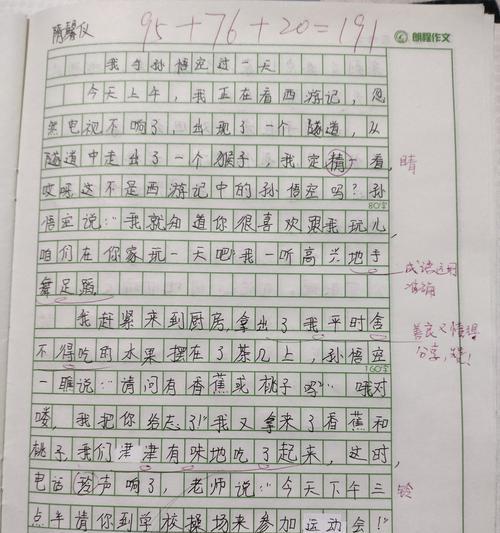 隋馨仪
95+76+20=191
朗程作文
我与孙悟空过一天
今天上午，我正在看西游记，忽
然电视不响了，出现了一个隧道，从
隧道中走出了一个猴子，我定精一看，
睛
哎呀这不是西游记中的孙悟空吗？孙
80字
悟空说：“我就知道你很喜欢跟我玩儿
咱们在你家玩一天吧”我一听高兴地手
舞足蹈
成语运用
准确
我赶紧来到厨房，拿出了我平时舍
不得吃的水果摆在了茶几上，孙悟空
160字
善良又懂得
分享，
一瞧说：“请问有香蕉或桃子吗？”“哦对
喽，我把你给忘了！”我又拿来了香蕉和
桃子，我们津津有味地吃了起来，这时，
电话声响了，老师说：“今天下午三
铃
点半请你到学校操场来参加运动会！”